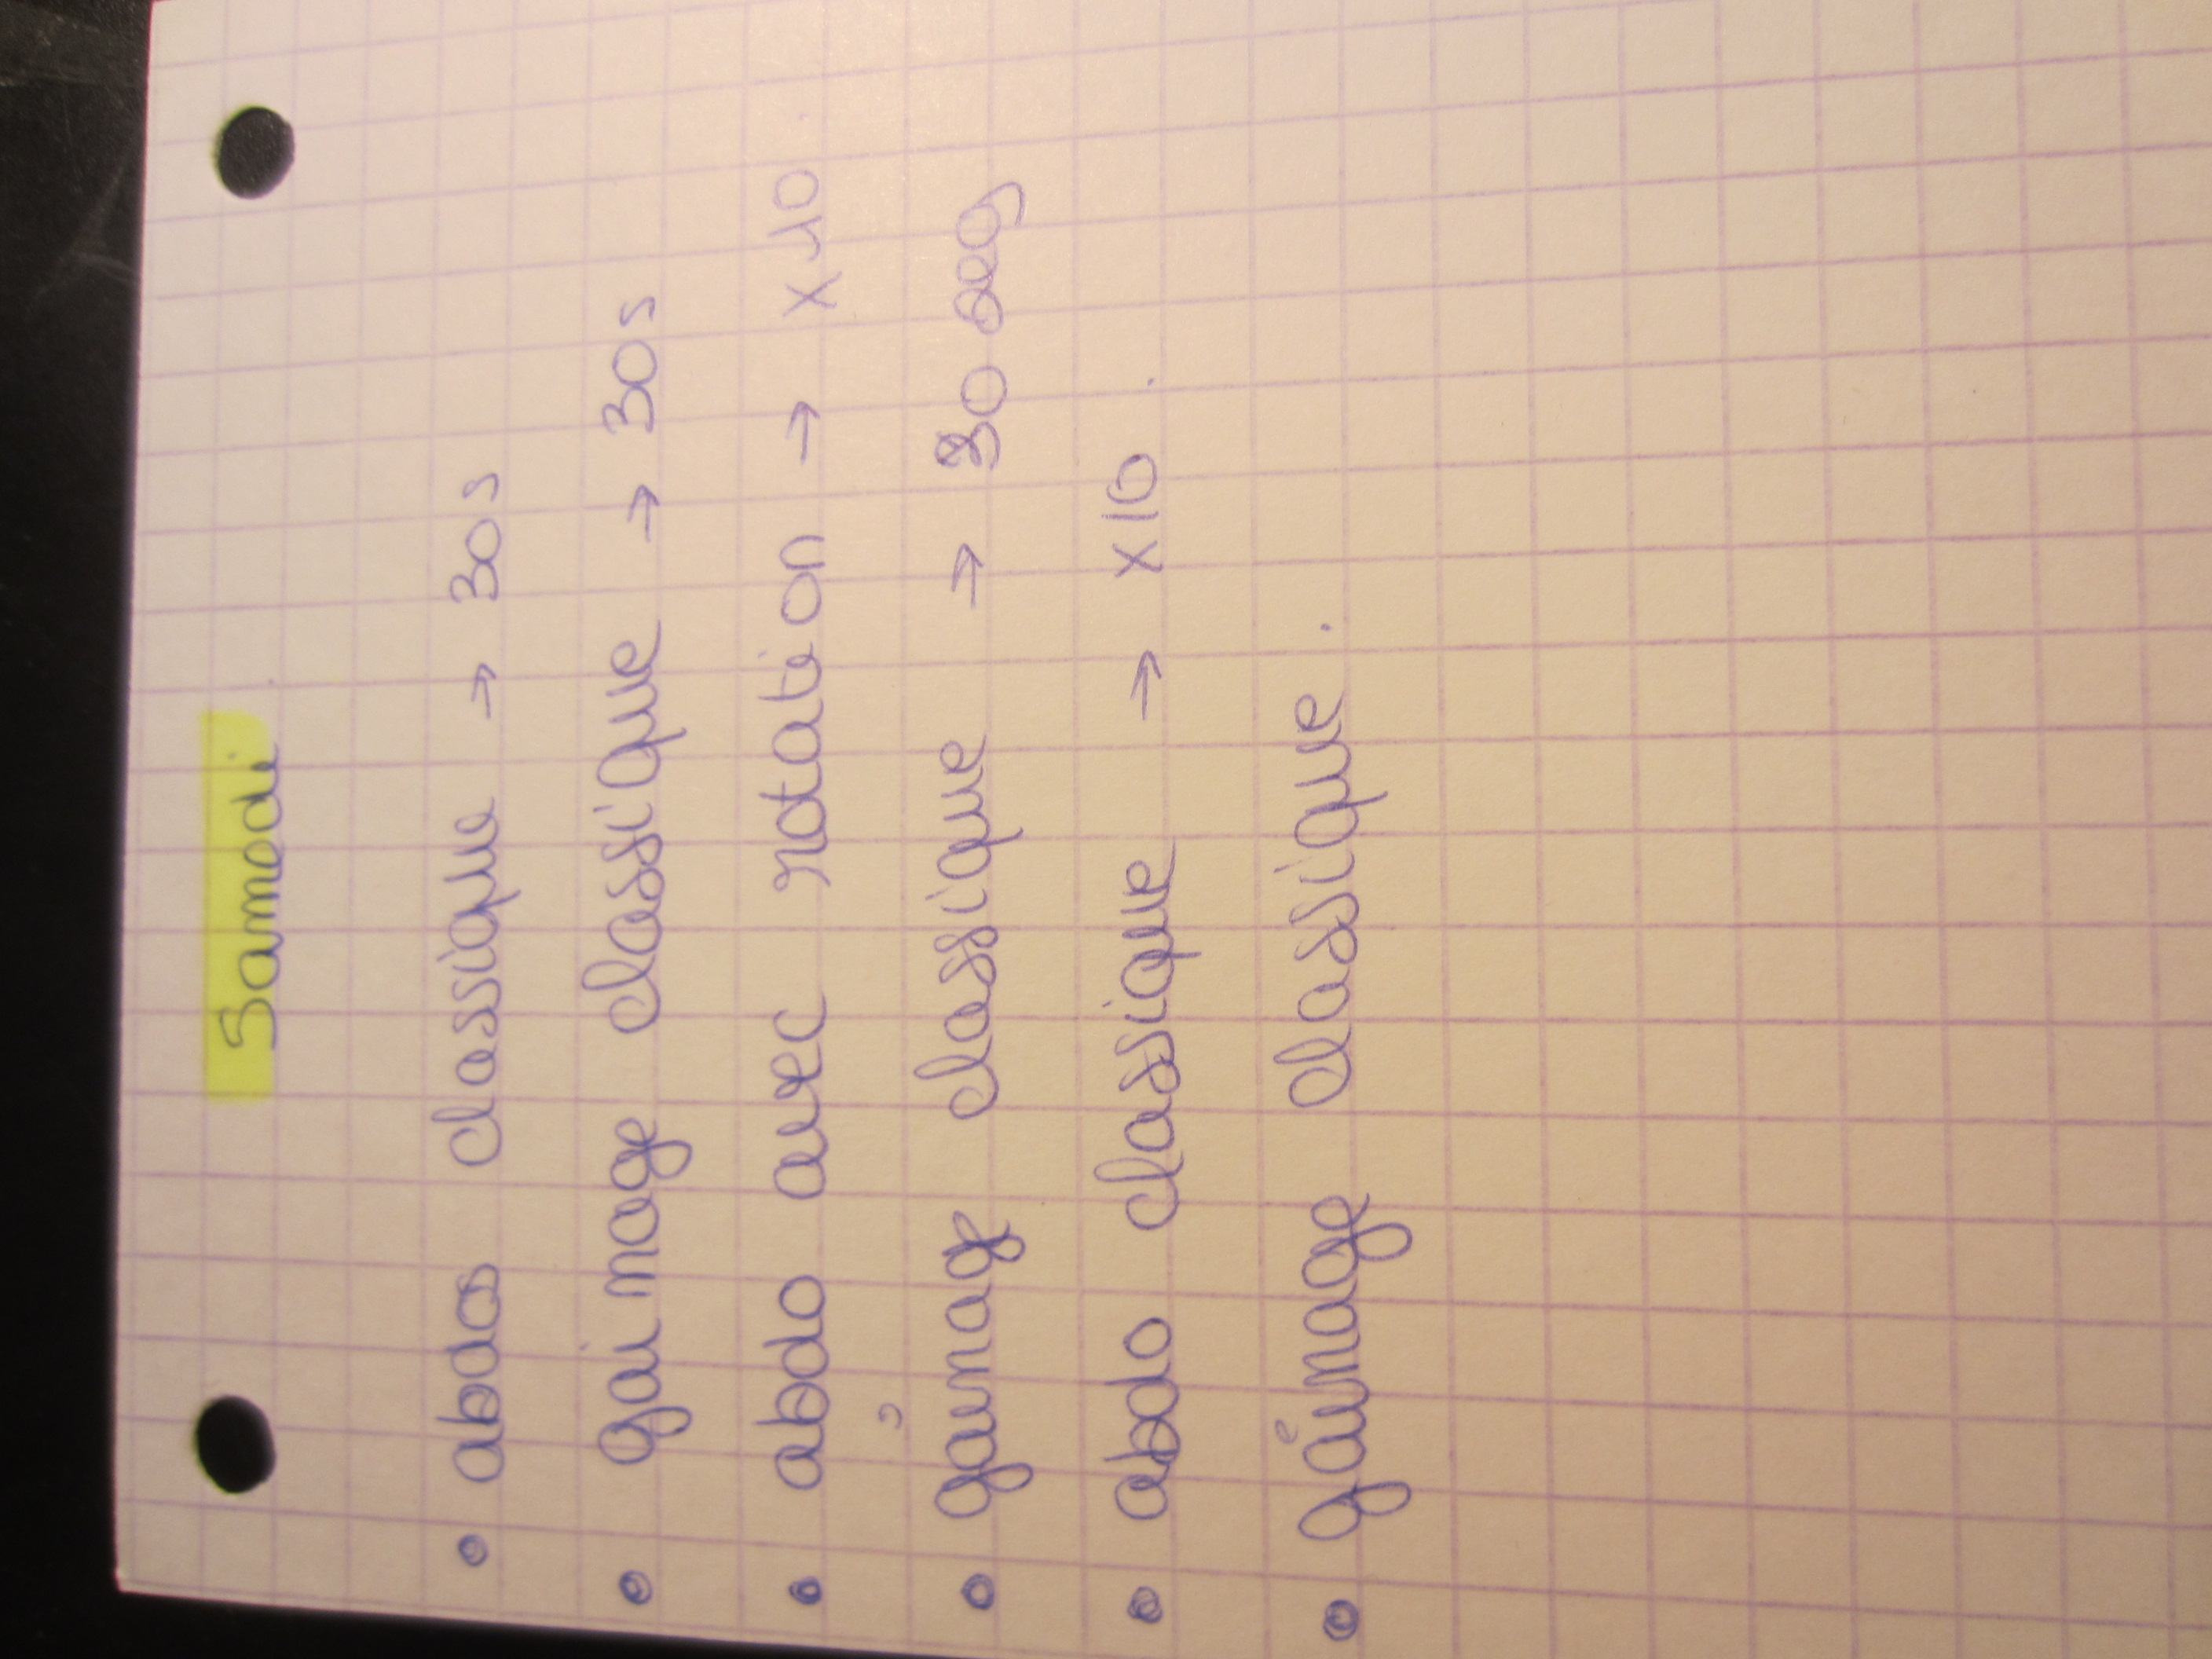 Samedi
• abdos classique → 30s
• gainage classique → 30s
• abdo avec rotation → x 10.
• gainage classique → 30 seg
• abdo classique → x10.
• gainage classique.